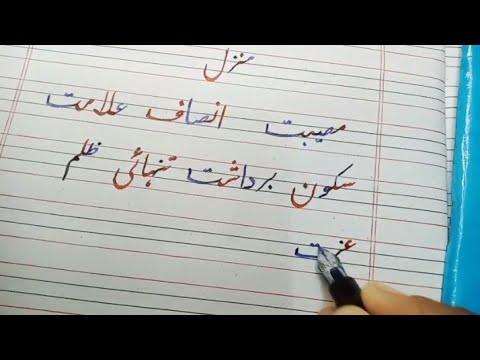 منزل
مصیبت انصاف علامت
سکون برداشت تنہائی ظلم
عزت